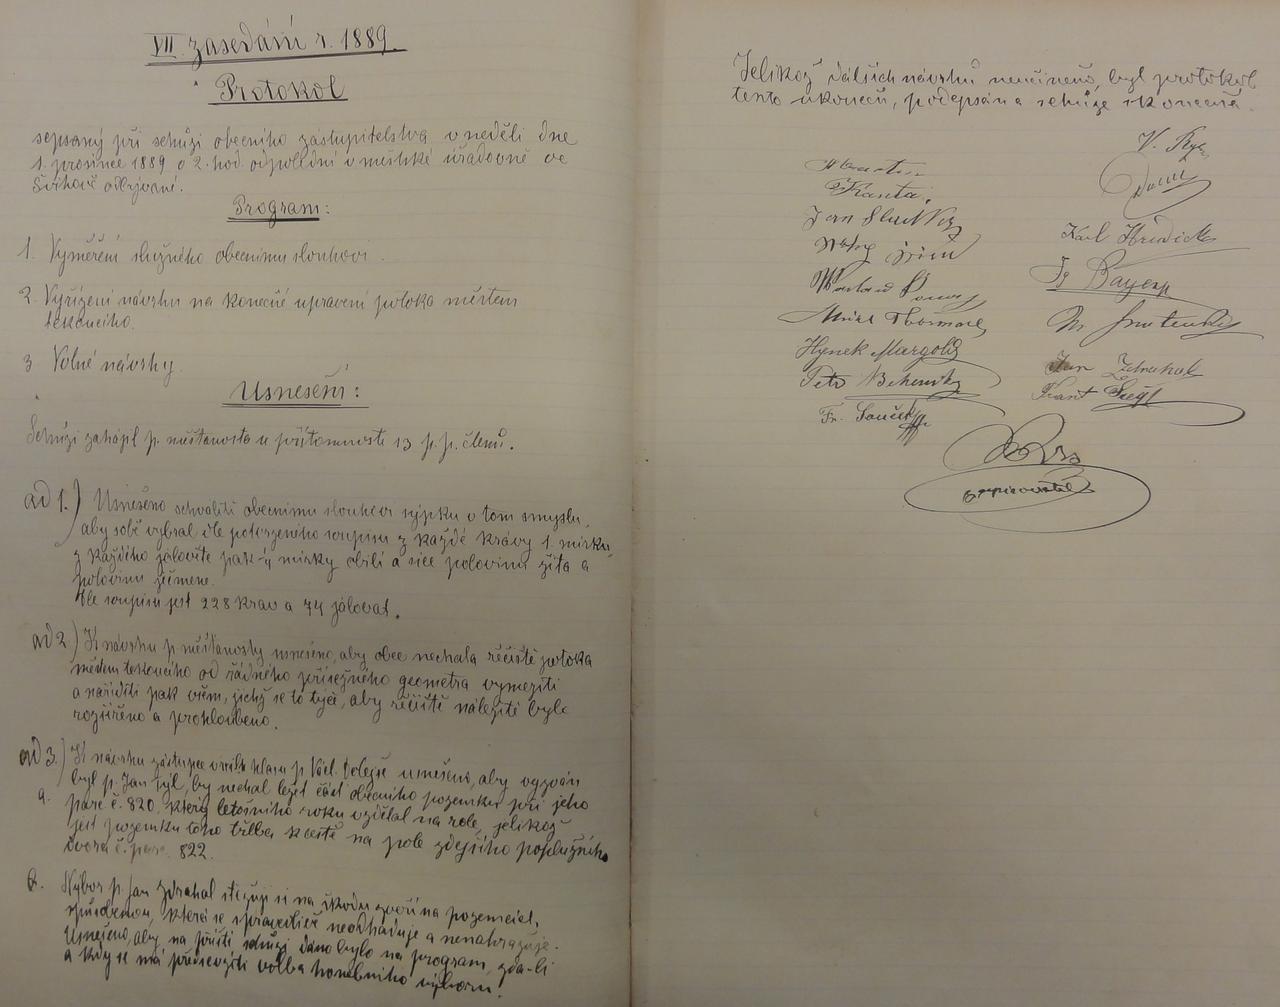 VII. zasedání r. 1889.
Protokol
sepsaný při schůzi obecního zastupitelstva v neděli dne
1. prosince 1889 o 2. hod. odpolední v městské úřadovně ve
Švihově odbývané.
Program:
1. Vyměření služného obecnímu slouhovi.
2. Vyřízení návrhu na konečné upravení potoka městem
tekoucího.
3 Volné návrhy.
Usnesení:
Schůzi zahájil p. měšťanosta u přítomnosti 13 p. p. členů.
ad 1.) Usneseno schváliti obecnímu slouhovi sýpku v tom smyslu,
aby sobě vybral dle potvrzeného soupisu z každé krávy 1. mírku,
z každého jalovite pak ¼ mírky obilí a sice polovinu žita a
polovinu ječmene.
Dle soupisu jest 228 krav a 74 jalovat.
ad 2) K návrhu p. měšťanosty usneseno, aby obec nechala řečiště potoka
městem tekoucího od řádného přísežného geometra vymeziti
a naříditi pak všem, jichž se to týče, aby řečiště náležitě bylo
rozšířeno a prohloubeno.
ad 3.) K návrhu zástupce p. Václ. Dolejše usneseno, aby vyzván
byl p. Jan Týl, by nechal ležet část obecního pozemku při jeho
a. parc č. 820. který letošního roku vzdělal na role, jelikož
jest pozemku toho třeba k cestě na pole zdejšího poplužního
dvora č. parc. 822.
b. Výbor p. Jan Zdrahal stěžuje si na škodu zvěří na pozemcích,
způsobenou, která se spravedlivě neodhaduje a nenahrazuje.
Usneseno, aby na příští schůzi dáno bylo na program, zda-li
a kdy se má předsevzíti volba honebního výboru.
Jelikož dalších návrhů nečiněno, byl protokol
tento ukončen, podepsán a schůze skončena.
Kanta.
Karl
Fr. Bayer
Hynek Margolis
Jan Zdrahal
Petr
Frant
Fr. Souček